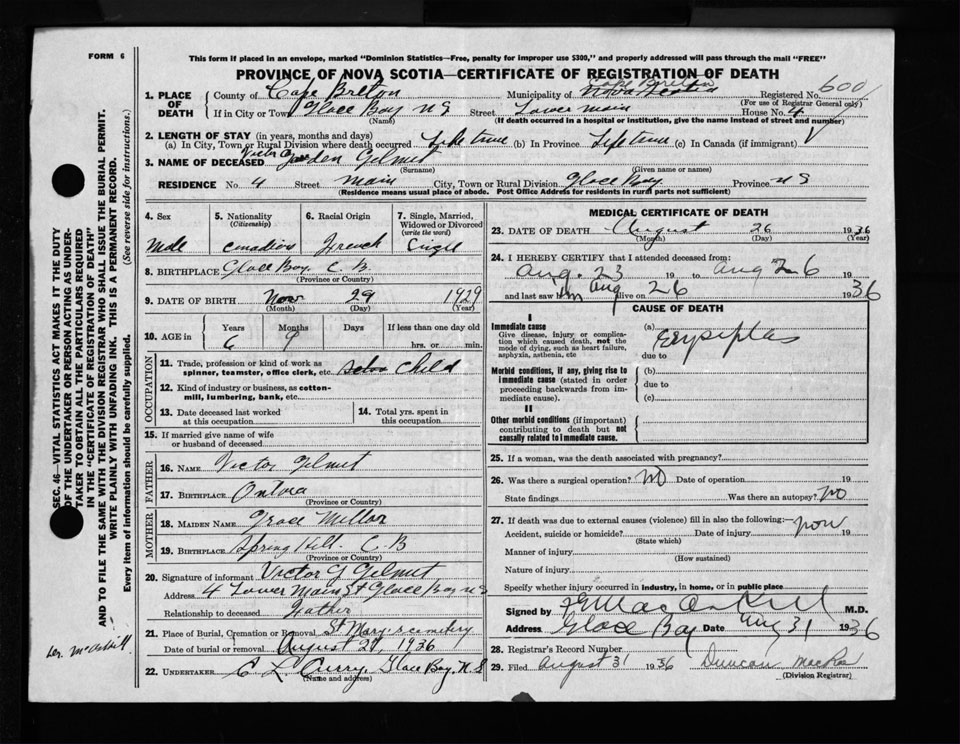 FORM 6
This form if placed in an envelope, marked "Dominion Statistics—Free, penalty for improper use $300," and properly addressed will pass through the mail "FREE"
PROVINCE OF NOVA SCOTIA—CERTIFICATE OF REGISTRATION OF DEATH
1. PLACE OF DEATH County of Cape Breton Municipality of Cape Breton Nova Scotia Registered No. 600
(For use of Registrar General only)
If in City or Town Glace Bay N S Street Lower main House No. 4
(Name) (If death occurred in a hospital or institution, give the name instead of street and number)
2. LENGTH OF STAY (in years, months and days)
(a) In City, Town or Rural Division where death occurred Life time (b) In Province Life time (c) In Canada (if immigrant)
3. NAME OF DECEASED Victor Gorden Gelmut
(Surname) (Given name or names)
RESIDENCE No. 4 Street main City, Town or Rural Division Glace Bay Province N S
(Residence means usual place of abode. Post Office Address for residents in rural parts not sufficient)
4. Sex Male
5. Nationality (Citizenship) Canadian
6. Racial Origin French
7. Single, Married, Widowed or Divorced (write the word) Single
8. BIRTHPLACE Glace Bay C B
(Province or Country)
9. DATE OF BIRTH Nov 29 1929
(Month) (Day) (Year)
10. AGE in Years Months Days If less than one day old
6 9 hrs. or min.
OCCUPATION
11. Trade, profession or kind of work as spinner, teamster, office clerk, etc. Child
12. Kind of industry or business, as cotton-mill, lumbering, bank, etc.
13. Date deceased last worked at this occupation
14. Total yrs. spent in this occupation
15. If married give name of wife or husband of deceased
FATHER
16. NAME Victor Gelmut
17. BIRTHPLACE
(Province or Country)
MOTHER
18. MAIDEN NAME Grace Millar
19. BIRTHPLACE Spring Hill C. B
(Province or Country)
20. Signature of informant Victor G Gelmut
Address 4 Lower Main St Glace Bay N S
Relationship to deceased Father
21. Place of Burial, Cremation or Removal St Mary's cemetery
Date of burial or removal August 27, 1936
22. UNDERTAKER C L Curry, Glace Bay, N S
(Name and address)
MEDICAL CERTIFICATE OF DEATH
23. DATE OF DEATH August 26 1936
(Month) (Day) (Year)
24. I HEREBY CERTIFY that I attended deceased from:
Aug. 23 19 to Aug 26 19
and last saw him alive on Aug 26 1936
CAUSE OF DEATH
I
Immediate cause
Give disease, injury or complication which caused death, not the mode of dying, such as heart failure, asphyxia, asthenia, etc
(a) Erysiplas
due to
Morbid conditions, if any, giving rise to immediate cause (stated in order proceeding backwards from immediate cause).
(b)
due to
(c)
II
Other morbid conditions (if important) contributing to death but not causally related to immediate cause.
25. If a woman, was the death associated with pregnancy?
26. Was there a surgical operation? No Date of operation 19
State findings Was there an autopsy? No
27. If death was due to external causes (violence) fill in also the following:
Accident, suicide or homicide? Date of injury 19
(State which)
Manner of injury
(How sustained)
Nature of injury
Specify whether injury occurred in industry, in home, or in public place
Signed by M.D.
Address Glace Bay Date Aug 31 1936
28. Registrar's Record Number
29. Filed August 31 1936 Duncan MacRae
(Division Registrar)
SEC. 46—VITAL STATISTICS ACT MAKES IT THE DUTY
OF THE UNDERTAKER OR PERSON ACTING AS UNDER-
TAKER TO OBTAIN ALL THE PARTICULARS REQUIRED
IN THE "CERTIFICATE OF REGISTRATION OF DEATH"
AND TO FILE THE SAME WITH THE DIVISION REGISTRAR WHO SHALL ISSUE THE BURIAL PERMIT.
WRITE PLAINLY WITH UNFADING INK. THIS IS A PERMANENT RECORD.
Every item of information should be carefully supplied. (See reverse side for instructions.)